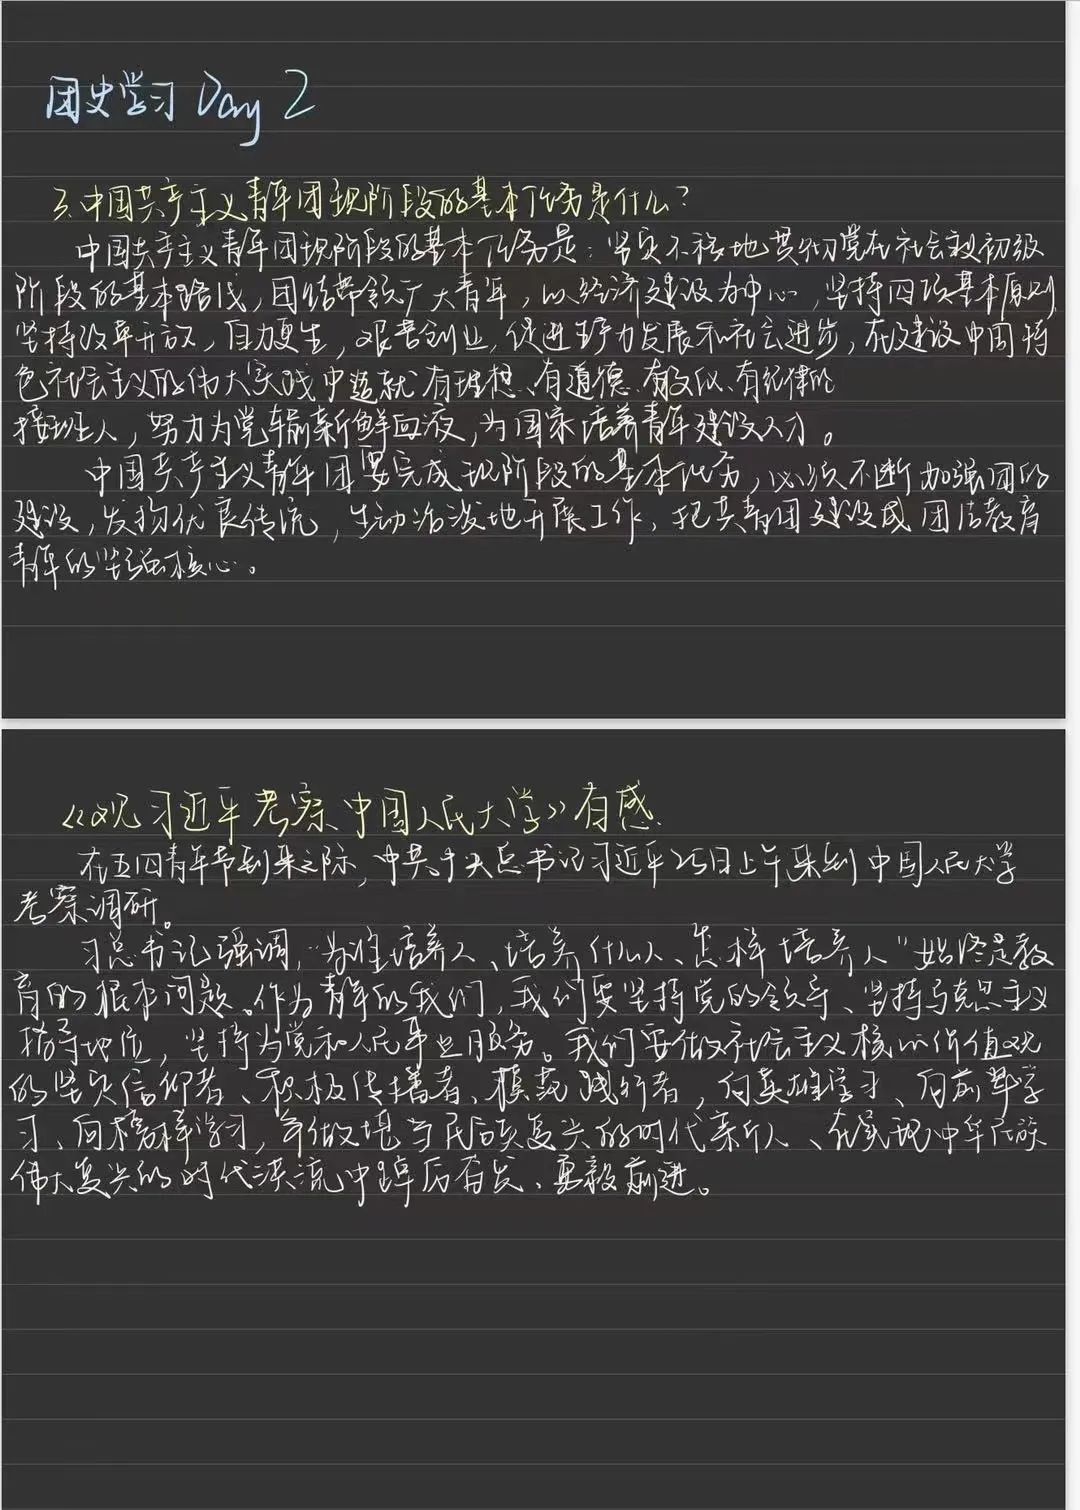 团史学习 Day 2
3.中国共产主义青年团现阶段的基本任务是什么?
中国共产主义青年团现阶段的基本任务是：坚定不移地贯彻党在社会主义初级
阶段的基本路线，团结带领广大青年，以经济建设为中心，坚持四项基本原则，
坚持改革开放，自力更生，艰苦创业，促进生产力发展和社会进步，在建设中国特
色社会主义的伟大实践中造就有理想、有道德、有文化、有纪律的
接班人，努力为党输新鲜血液，为国家培养青年建设人才。
中国共产主义青年团要完成现阶段的基本任务，必须不断加强团的
建设，发扬优良传统，生动活泼地开展工作，把共青团建设成团结教育
青年的坚强核心。
《观习近平考察中国人民大学》有感
在五四青年节到来之际，中共中央总书记习近平25日上午来到中国人民大学
考察调研。
习总书记强调，“为谁培养人、培养什么人、怎样培养人”始终是教
育的根本问题。作为青年的我们，我们要坚持党的领导、坚持马克思主义
指导地位，坚持为党和人民事业服务。我们要做社会主义核心价值观
的坚定信仰者、积极传播者、模范践行者，向英雄学习、向前辈学
习、向榜样学习，争做堪当民族复兴的时代新人、在实现中华民族
伟大复兴的时代洪流中踔厉奋发、勇毅前进。